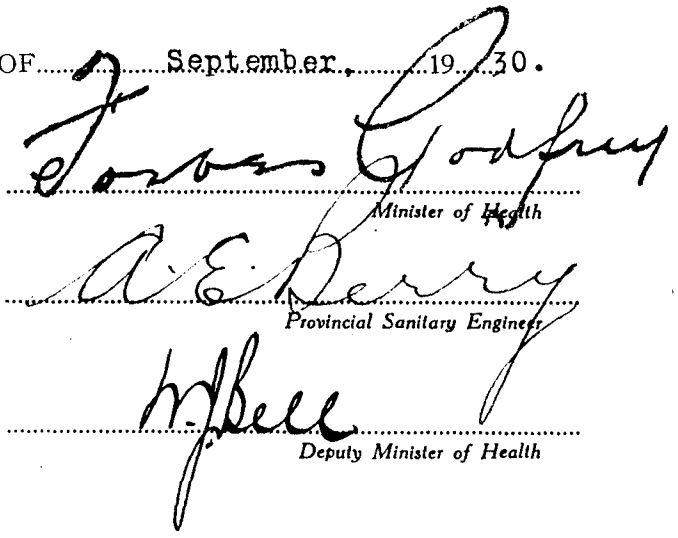 OF September, 1930.
Forbes Godfrey
Minister of Health
A. E. Berry
Provincial Sanitary Engineer
W. J. Bell
Deputy Minister of Health